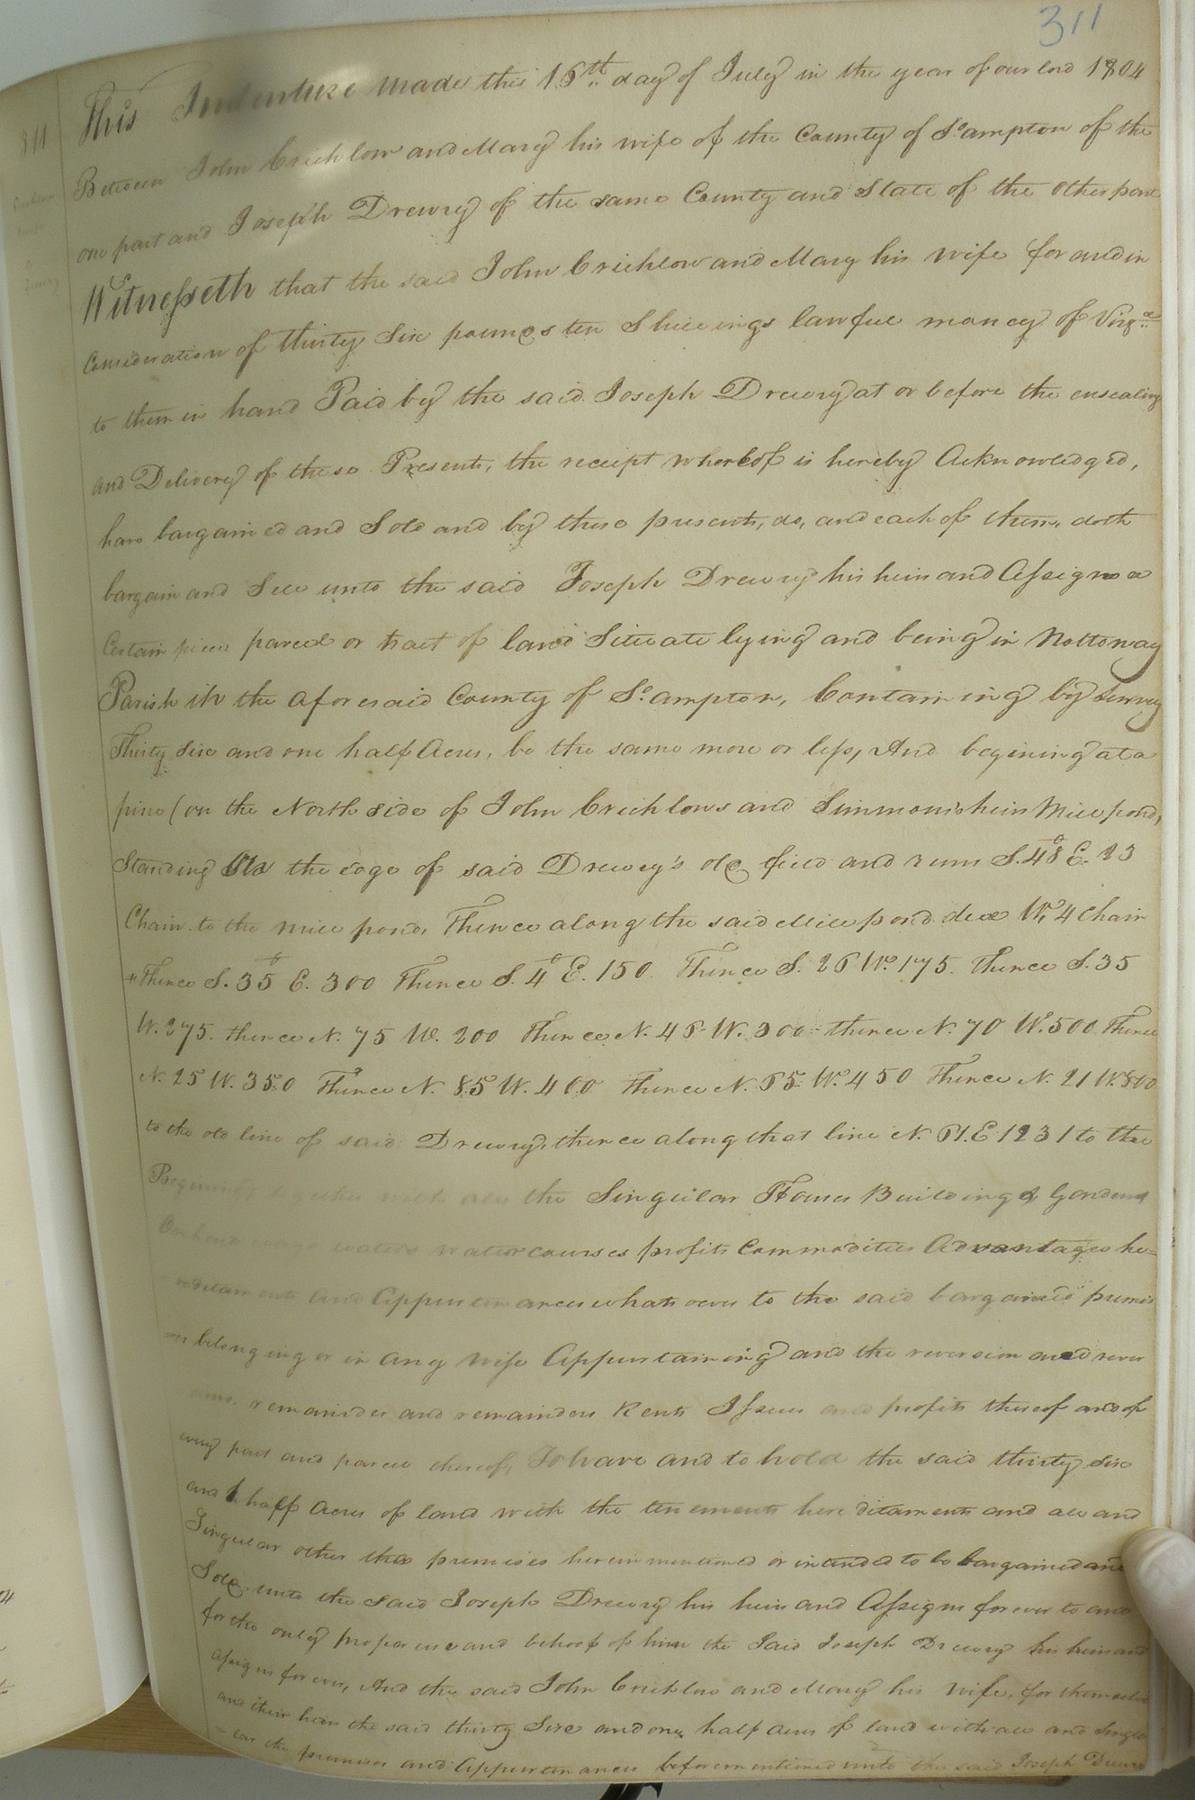 311
This Indenture made this 16th day of July in the year of our lord 1804
Between John Crichlow and Mary his wife of the County of So.ampton of the
one part and Joseph Drewry of the same County and State of the other part
Witnesseth that the said John Crichlow and Mary his wife for and in
Consideration of thirty Six pounds ten Shillings lawful money of Virga.
to them in hand Paid by the said Joseph Drewry at or before the ensealing
and Delivery of these Presents, the receipt whereof is hereby Acknowledged,
have bargained and Sold and by these presents, do, and each of them, doth
bargain and Sell unto the said Joseph Drewry his heirs and Assigns a
Certain piece parcel or tract of land Situate lying and being in Nottoway
Parish in the aforesaid County of So.ampton, Containing by Survey
Thirty Six and one half Acres, be the same more or less, And begining at a
pine (on the North side of John Crichlows and Simmons's heirs Mill pond,
Standing On the edge of said Drewry's old field and runs S. 48 E. 23
Chain to the mill pond, Thence along the said Mill pond due W. 4 Chain
Thence S. 35 E. 300 Thence S. 4 E. 150 Thence S. 26 W. 175. Thence S. 35
W. 275. thence N. 75 W. 200 Thence N. 46 W. 300 thence N. 70 W. 500 Thence
N. 25 W. 350 Thence N. 85 W. 400 Thence N. 65 W. 450 Thence N. 21 W. 800
to the old line of said Drewry, thence along that line N. 61. E 1231 to the
Begining together with all the Singular Houses Buildings & Gardens
Orchards ways waters watercourses profits Commodities Advantages he=
reditaments and Appurtenances whatsoever to the said bargained premis
es belonging or in any wise Appurtaining and the reversion and rever
sions, remainder and remainders Rents Issues and profits thereof and of
every part and parcel thereof, To have and to hold the said thirty six
and half Acres of land with the tenements hereditaments and all and
Singular other the premises herein mentioned or intended to be bargained and
Sold unto the said Joseph Drewry his heirs and Assigns forever to and
for the only proper use and behoof of him the Said Joseph Drewry his heirs and
assigns forever, And the said John Crichlow and Mary his Wife, for themselves
and their heirs the said thirty Six and one half acres of land with all and Singu
lar the premises and Appurtenances beforementioned unto the said Joseph Drewry